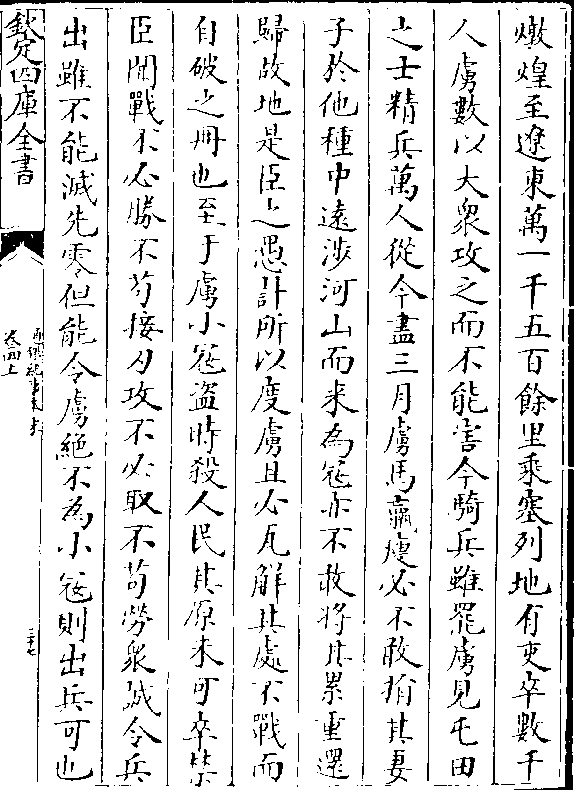 燉煌至遼東萬一千五百餘里乘塞列地有吏卒數千
人虜數以大衆攻之而不能害今騎兵雖罷虜見屯田
之士精兵萬人從今盡三月虜馬羸瘦必不敢捐其妻
子於他種中遠涉河山而来為寇亦不敢將其累重還
歸故地是臣之愚計所以度虜且必瓦解其處不戰而
自破之冊也至于虜小寇盗時殺人民其原未可卒禁
臣聞戰不必勝不茍接刃攻不必取不茍勞衆誠令兵
出雖不能滅先零但能令虜絶不為小寇則出兵可也
欽定四庫全書
卷四上
三十七